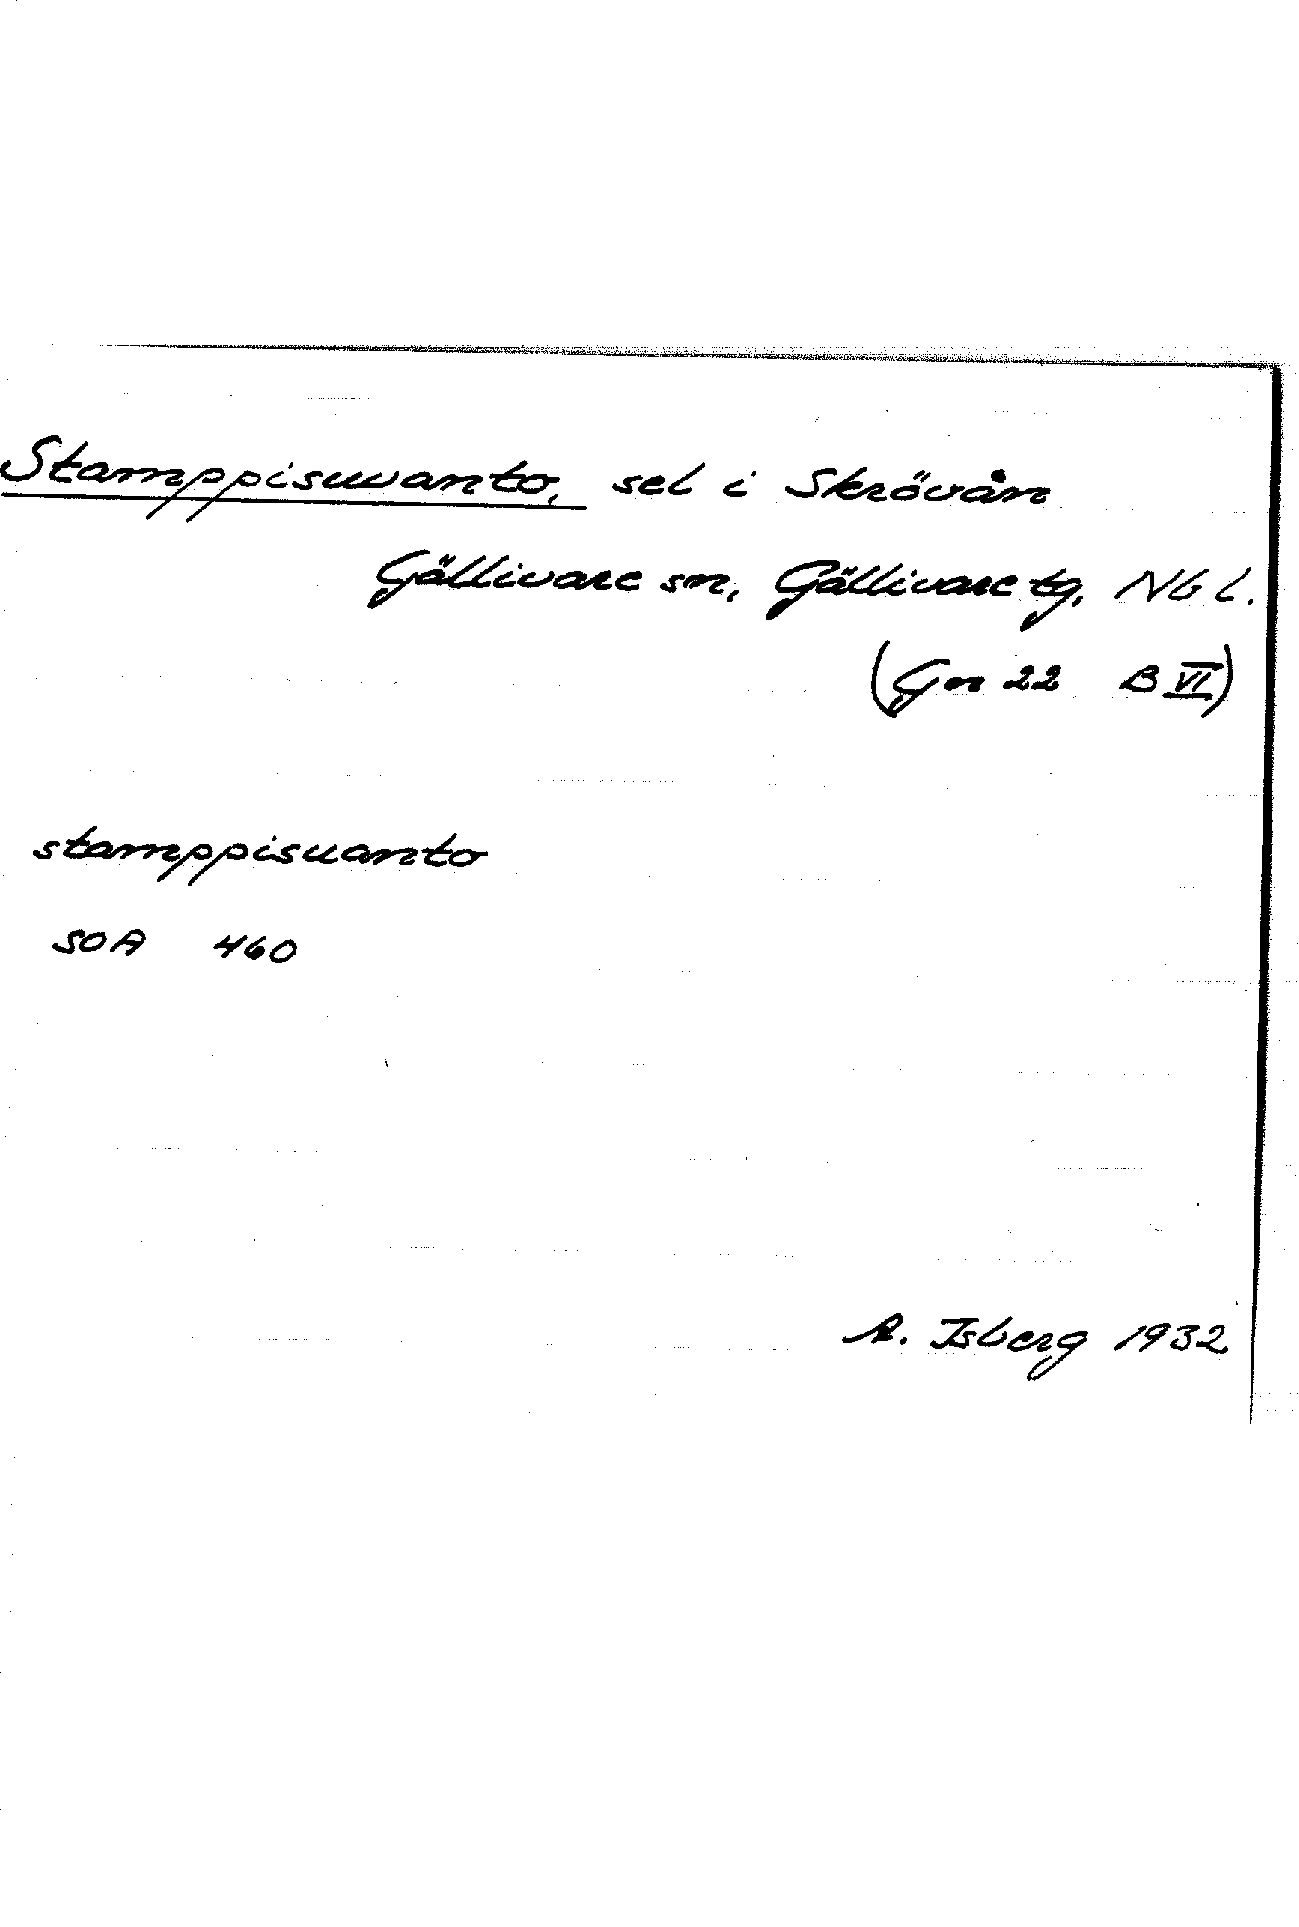 Stamppisuvanto, sel i Skrövån
Gällivare sn, Gällivare tg, NB l.
(Gn 22 B VI)
stamppisuanto
SOA 460
A. Isberg 1932